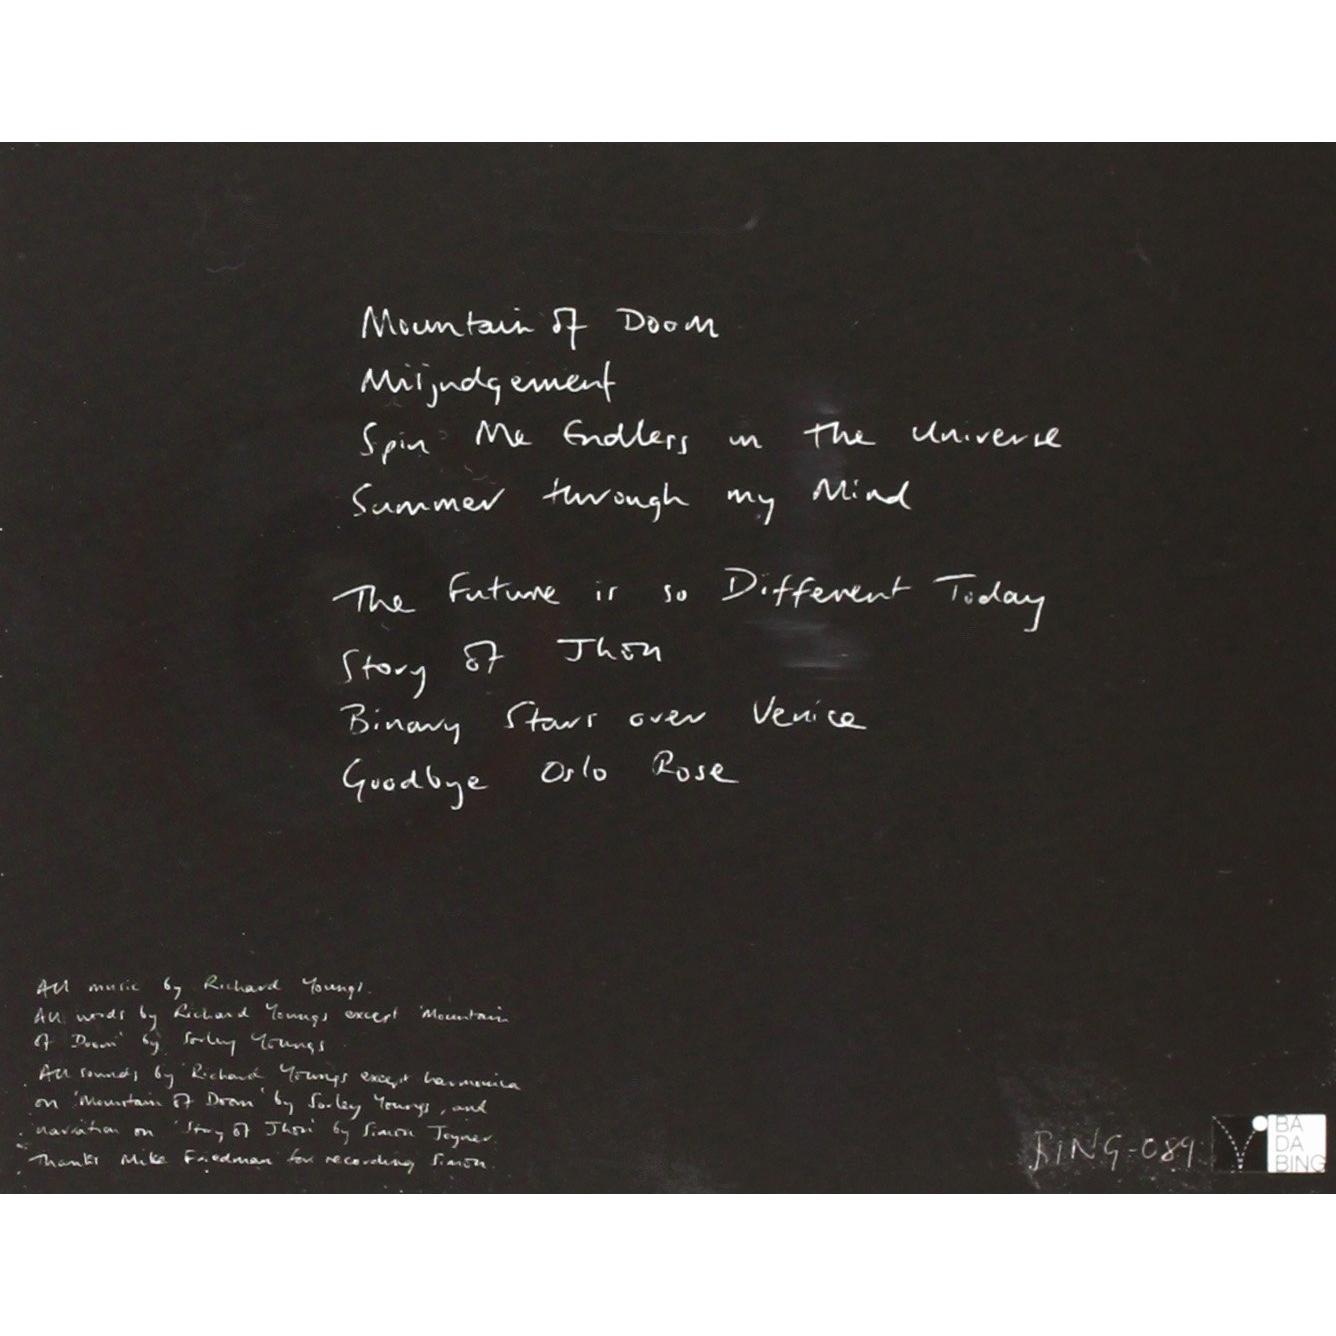 Mountain of Doom
Misjudgement
Spin Me Endless in the Universe
Summer through my Mind
The Future is so Different Today
Story of Jhon
Binary Stars over Venice
Goodbye Oslo Rose
All music by Richard Youngs.
All words by Richard Youngs except 'Mountain
of Doom' by Sorley Youngs.
All sounds by Richard Youngs except harmonica
on 'Mountain of Doom' by Sorley Youngs, and
narration on 'Story of Jhon' by Simon Joyner.
Thanks Mike Friedman for recording Simon.
BING-089
BA
DA
BING